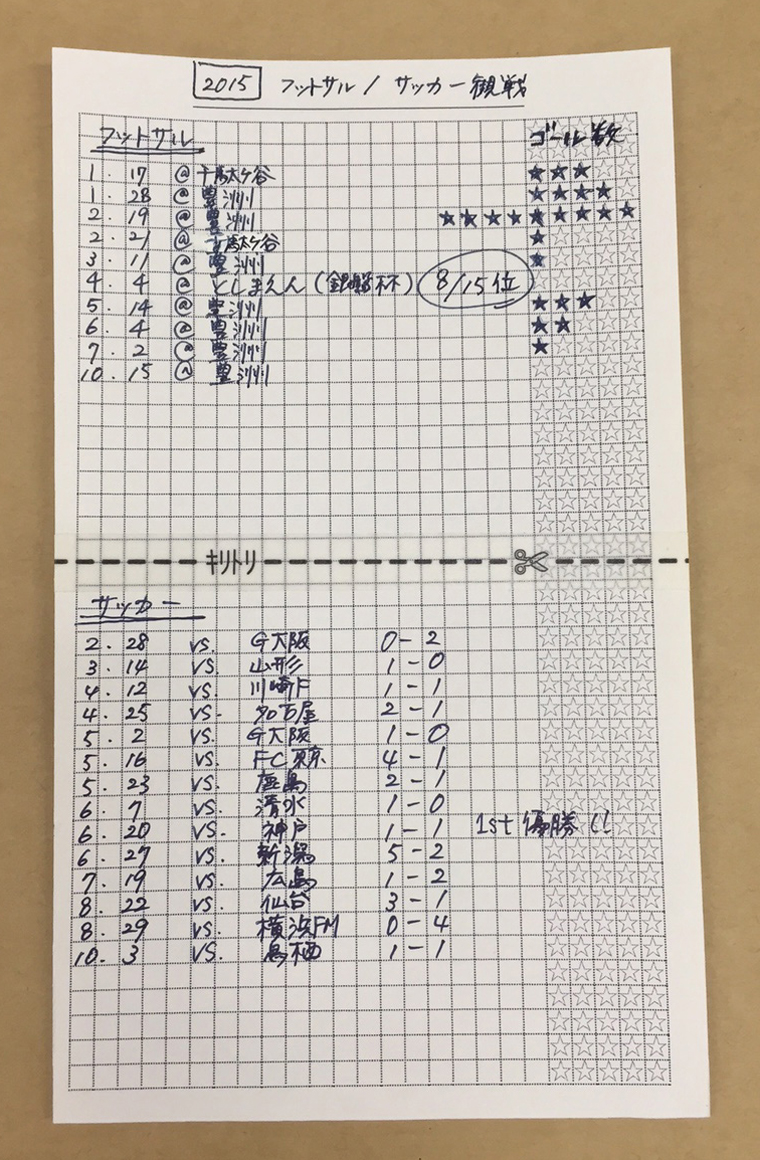 2015 フットサル / サッカー観戦
フットサル ゴール数
1. 17 @ 千駄ヶ谷 ★★★☆☆
1. 28 @ 豊洲 ★★★★☆
2. 19 @ 豊洲 ★★★★★★★★★
2. 21 @ 千駄ヶ谷 ★☆☆☆☆
3. 11 @ 豊洲 ★☆☆☆☆
4. 4 @ としまえん (銀蹴杯) 8/15位
5. 14 @ 豊洲 ★★★☆☆
6. 4 @ 豊洲 ★★☆☆☆
7. 2 @ 豊洲 ★☆☆☆☆
10. 15 @ 豊洲 ☆☆☆☆☆
キリトリ
サッカー
2. 28 vs. G大阪 0-2
3. 14 vs. 山形 1-0
4. 12 vs. 川崎F 1-1
4. 25 vs. 名古屋 2-1
5. 2 vs. G大阪 1-0
5. 16 vs. FC東京 4-1
5. 23 vs. 鹿島 2-1
6. 7 vs. 清水 1-0
6. 20 vs. 神戸 1-1 1st 優勝!!
6. 27 vs. 新潟 5-2
7. 19 vs. 広島 1-2
8. 22 vs. 仙台 3-1
8. 29 vs. 横浜FM 0-4
10. 3 vs. 鳥栖 1-1